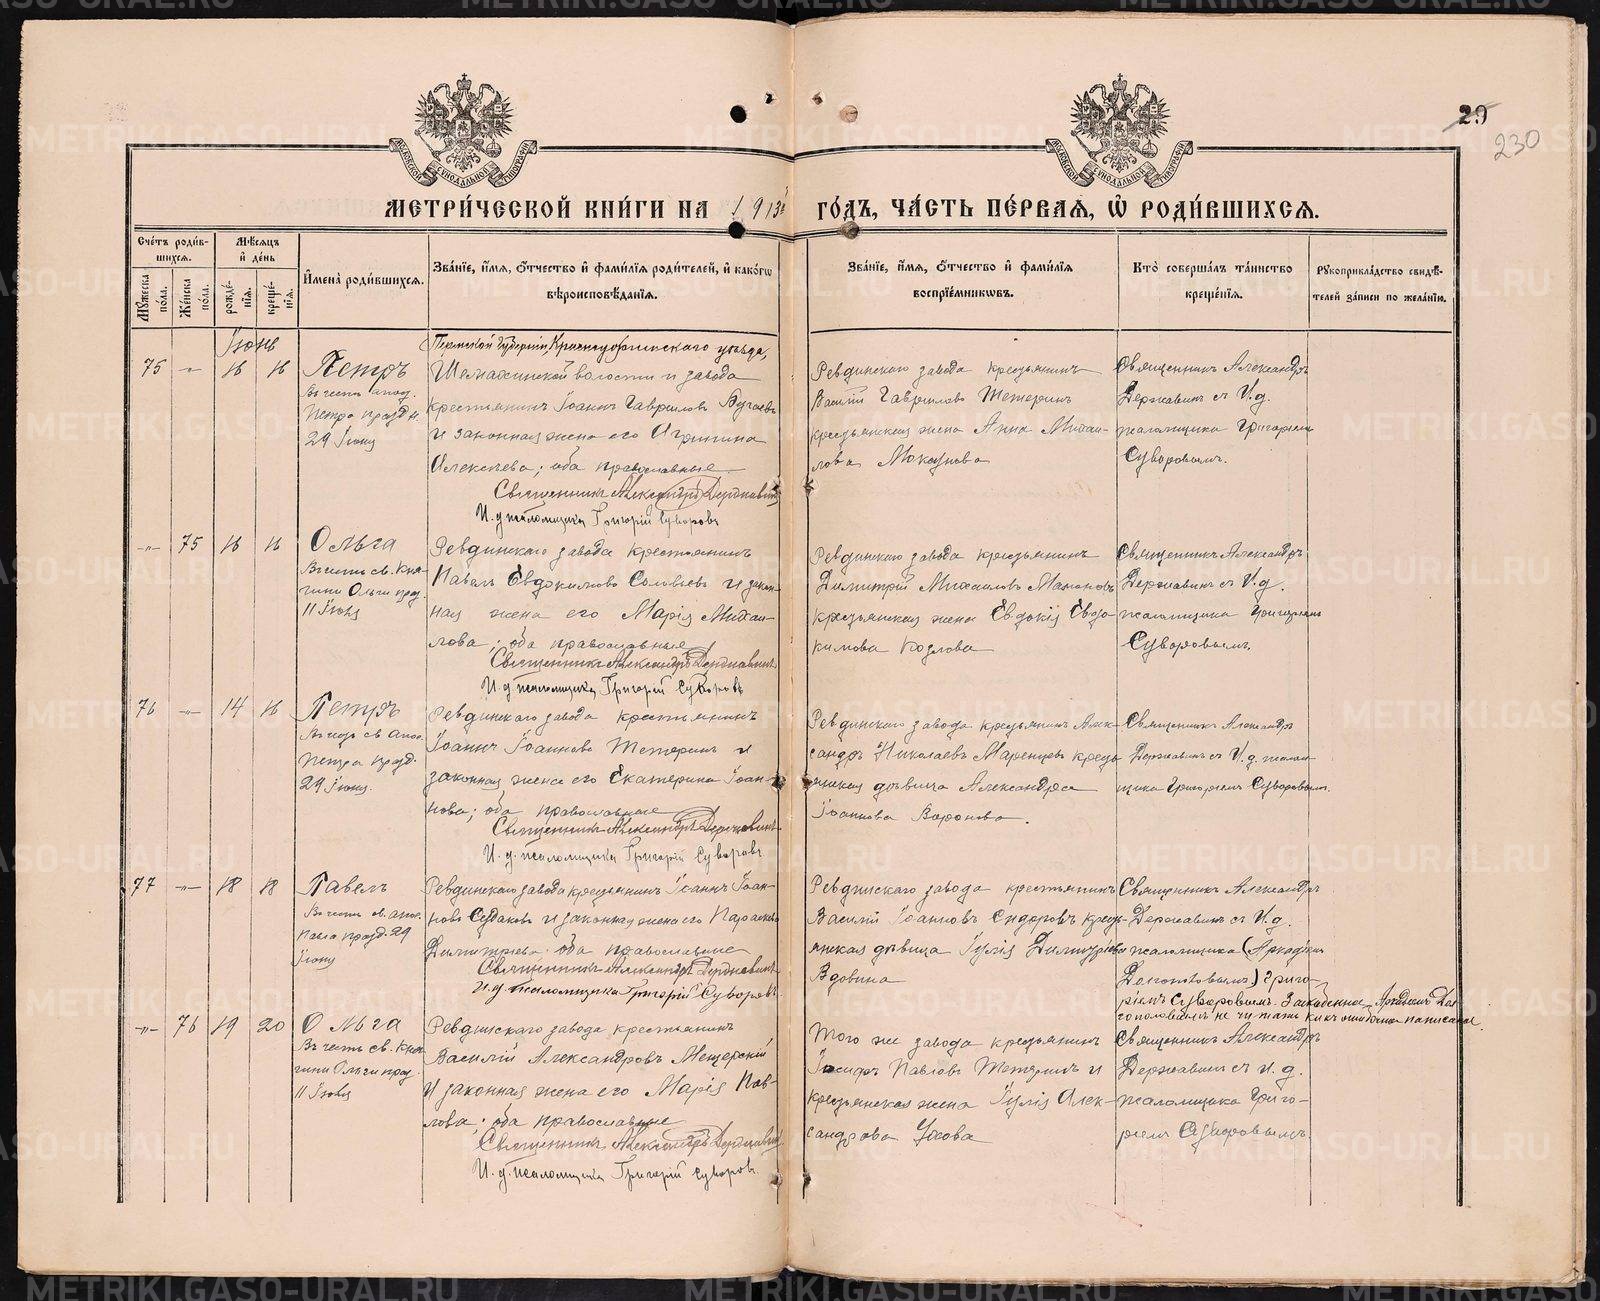 29
230
МЕТРИ́ЧЕСКОЙ КНИ́ГИ НА 1913й ГО́ДЪ, ЧА́СТЬ ПЕ́РВАЯ, Ѽ РОДИ́ВШИХСЯ.
Сче́тъ роди́вшихся.
Мѣсяцъ и́ де́нь
Мꙋ́жеска по́ла.
Же́нска по́ла.
рожде́нїя.
креще́нїя.
И҆мена̀ роди́вшихся.
Зва́нїе, и҆́мя, о҆́тчество и҆ фами́лїя роди́телей, и҆ како́гѡ
вѣроисповѣ́данїя.
Зва́нїе, и҆́мя, о҆́тчество и҆ фами́лїя
воспрїе́мникѡвъ.
Кто̀ соверша́лъ та́инство
креще́нїя.
Рꙋкоприкла́дство свидѣ́телей за́писи по жела́нїю.
Іюнь
75 -"- 16 16
Петръ
Въ честь апос.
Петра празд н.
29 Іюня
Пермской губерніи, Красноуфимскаго уѣзда,
Шемахинской волости и завода
крестьянинъ Іоаннъ Гавриловъ
и законная жена его Агрипина
Алексѣева; оба православные
Священникъ Александръ Державинъ
И. д. псаломщика Григорій Суворовъ
Ревдинскаго завода крестьянинъ
Василій Гавриловъ Тетеринъ
крестьянская жена Анна Михаи-
лова Мокаунова
Священникъ Александръ
Державинъ съ И. д.
псаломщика Григоріемъ
Суворовымъ.
-"- 75 16 16
Ольга
Въ честь св. Кня-
гини Ольги празд.
11 Іюля
Ревдинскаго завода крестьянинъ
Павелъ Евдокимовъ Соловьевъ и закон-
ная жена его Марія Михаи-
лова; оба православные
Священникъ Александръ Державинъ
И. д. псаломщика Григорій Суворовъ
Ревдинскаго завода крестьянинъ
Димитрій Михаиловъ Мамоновъ
крестьянская жена Евдокія Евдо-
кимова Козлова
Священникъ Александръ
Державинъ съ И. д.
псаломщика Григоріемъ
Суворовымъ.
76 -"- 14 16
Петръ
Въ честь св апос.
Петра празд.
29 Іюня.
Ревдинскаго завода крестьянинъ
Іоаннъ Іоанновъ Тетеринъ и
законная жена его Екатерина Іоан-
нова; оба православные
Священникъ Александръ Державинъ
И. д. псаломщика Григорій Суворовъ
Ревдинскаго завода крестьянинъ Алек-
сандръ Николаевъ Маренцевъ кресть-
янская дѣвица Александра
Іоаннова Воронова.
Священникъ Александръ
Державинъ съ И. д. псалом-
щика Григоріемъ Суворовымъ.
77 -"- 18 18
Павелъ
Въ честь св. апос.
Павла празд. 29
Іюня
Ревдинскаго завода крестьянинъ Іоаннъ Іоан-
новъ Судаковъ и законная жена его Параскева
Димитріева; оба православные
Священникъ Александръ Державинъ
И. д. псаломщика Григорій Суворовъ
Ревдинскаго завода крестьянинъ
Василій Іоанновъ Сидоровъ кресть-
янская дѣвица Іулія Димитріева
Вдовина
Священникъ Александръ
Державинъ съ И. д.
псаломщика (Аркадіемъ
) Григо-
ріемъ Суворовымъ. Зачеркнутое Аркадіемъ
не читать какъ ошибочно написанное.
-"- 76 19 20
Ольга
Въ честь св. Кня-
гини Ольги празд.
11 Іюля
Ревдинскаго завода крестьянинъ
Василій Александровъ Мещерскій
и законная жена его Марія Пав-
лова; оба православные
Священникъ Александръ Державинъ
И. д. псаломщика Григорій Суворовъ.
Того же завода крестьянинъ
Іосифъ Павловъ Тетеринъ и
крестьянская жена Іулія Алек-
сандрова Ухова
Священникъ Александръ
Державинъ съ И. д.
псаломщика Григо-
ріемъ Суворовымъ.
METRIKI.GASO-URAL.RU